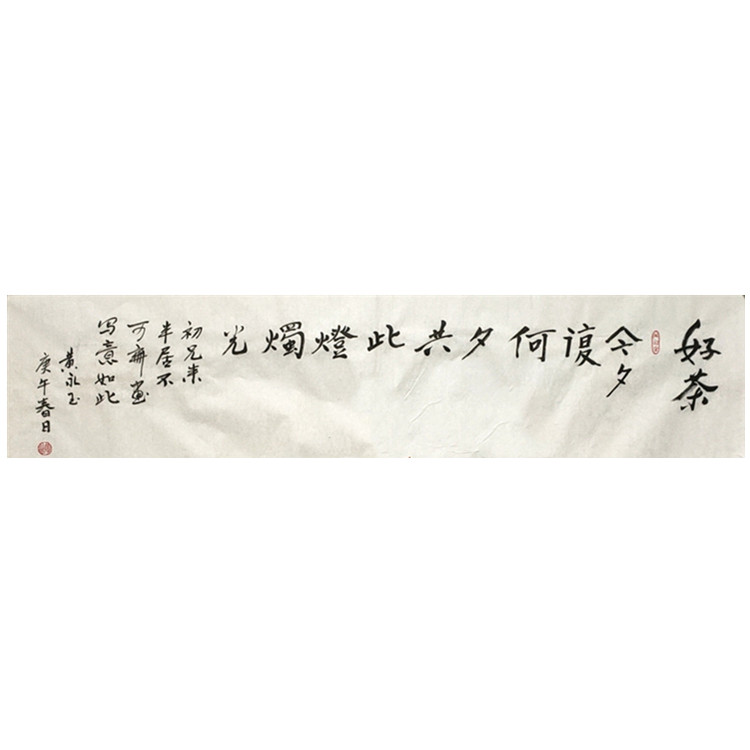 好茶
今夕
復
何
夕
共
此
燈
燭
光
初兄来
半居不
可无画
写意如此
黄永玉
庚午春日